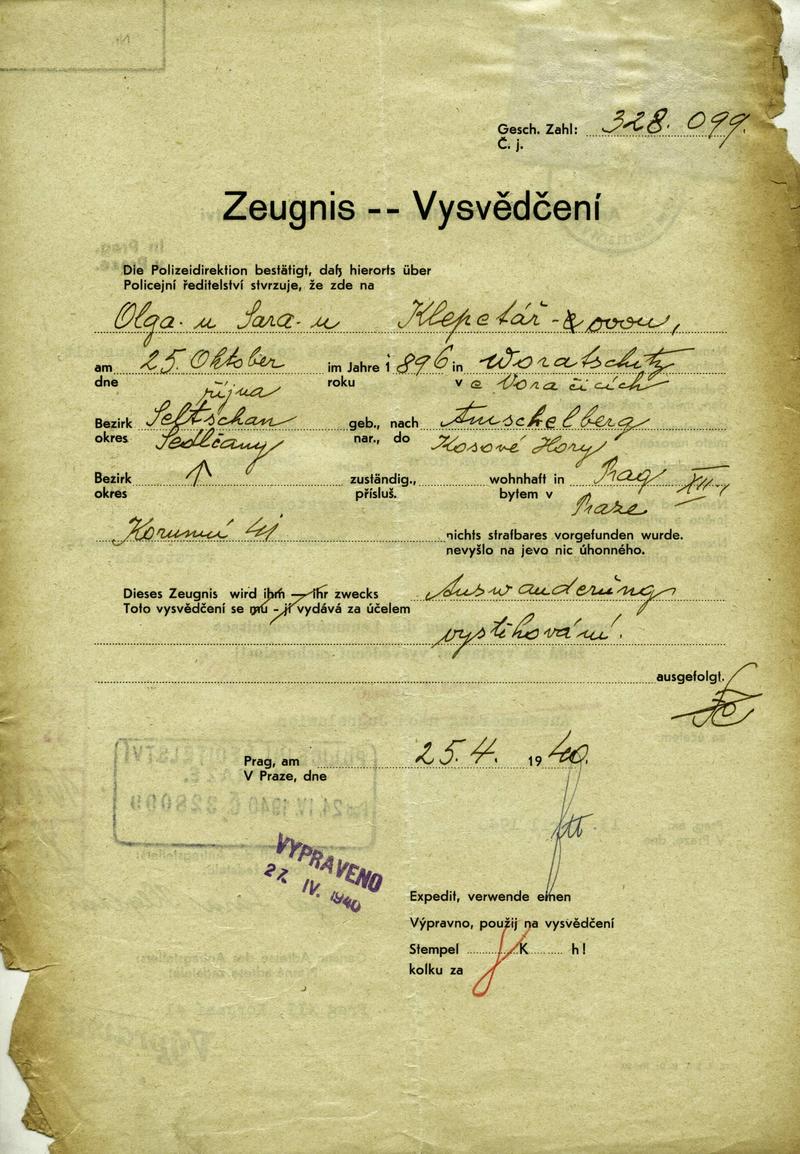 Gesch. Zahl: 328.099.
Č. j.
Zeugnis -- Vysvědčení
Die Polizeidirektion bestätigt, daß hierorts über
Policejní ředitelství stvrzuje, že zde na
Olga-u Sara-u Klepetář-ovou,
am 25. Oktober im Jahre 1896 in Woratschitz
dne října roku v e Voračicích
Bezirk Seltschan geb., nach Amschelberg
okres Sedlčany nar., do Kosové Hory
Bezirk zuständig., wohnhaft in Prag XII.,
okres přísluš. bytem v Praze
Korunní 41 nichts strafbares vorgefunden wurde.
nevyšlo na jevo nic úhonného.
Dieses Zeugnis wird ihm — ihr zwecks Auswanderung
Toto vysvědčení se mu - jí vydává za účelem
vystěhování.
ausgefolgt.
Prag, am 25.4. 1940.
V Praze, dne
VYPRAVENO
27. IV. 1940
Expedit, verwende einen
Výpravno, použij na vysvědčení
Stempel 8 K h!
kolku za